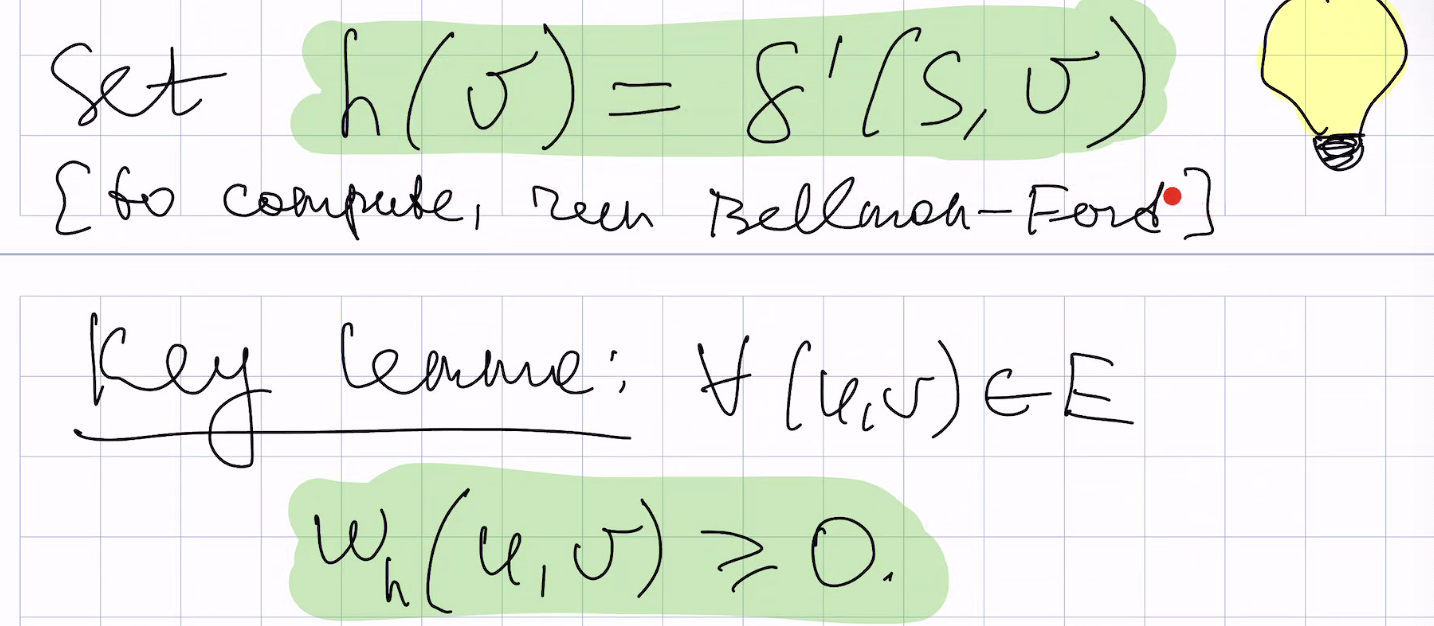 Set h(v) = δ'(s, v)
[to compute, run Bellman-Ford]
Key lemma: ∀ (u,v) ∈ E
w_h(u,v) ⩾ 0.